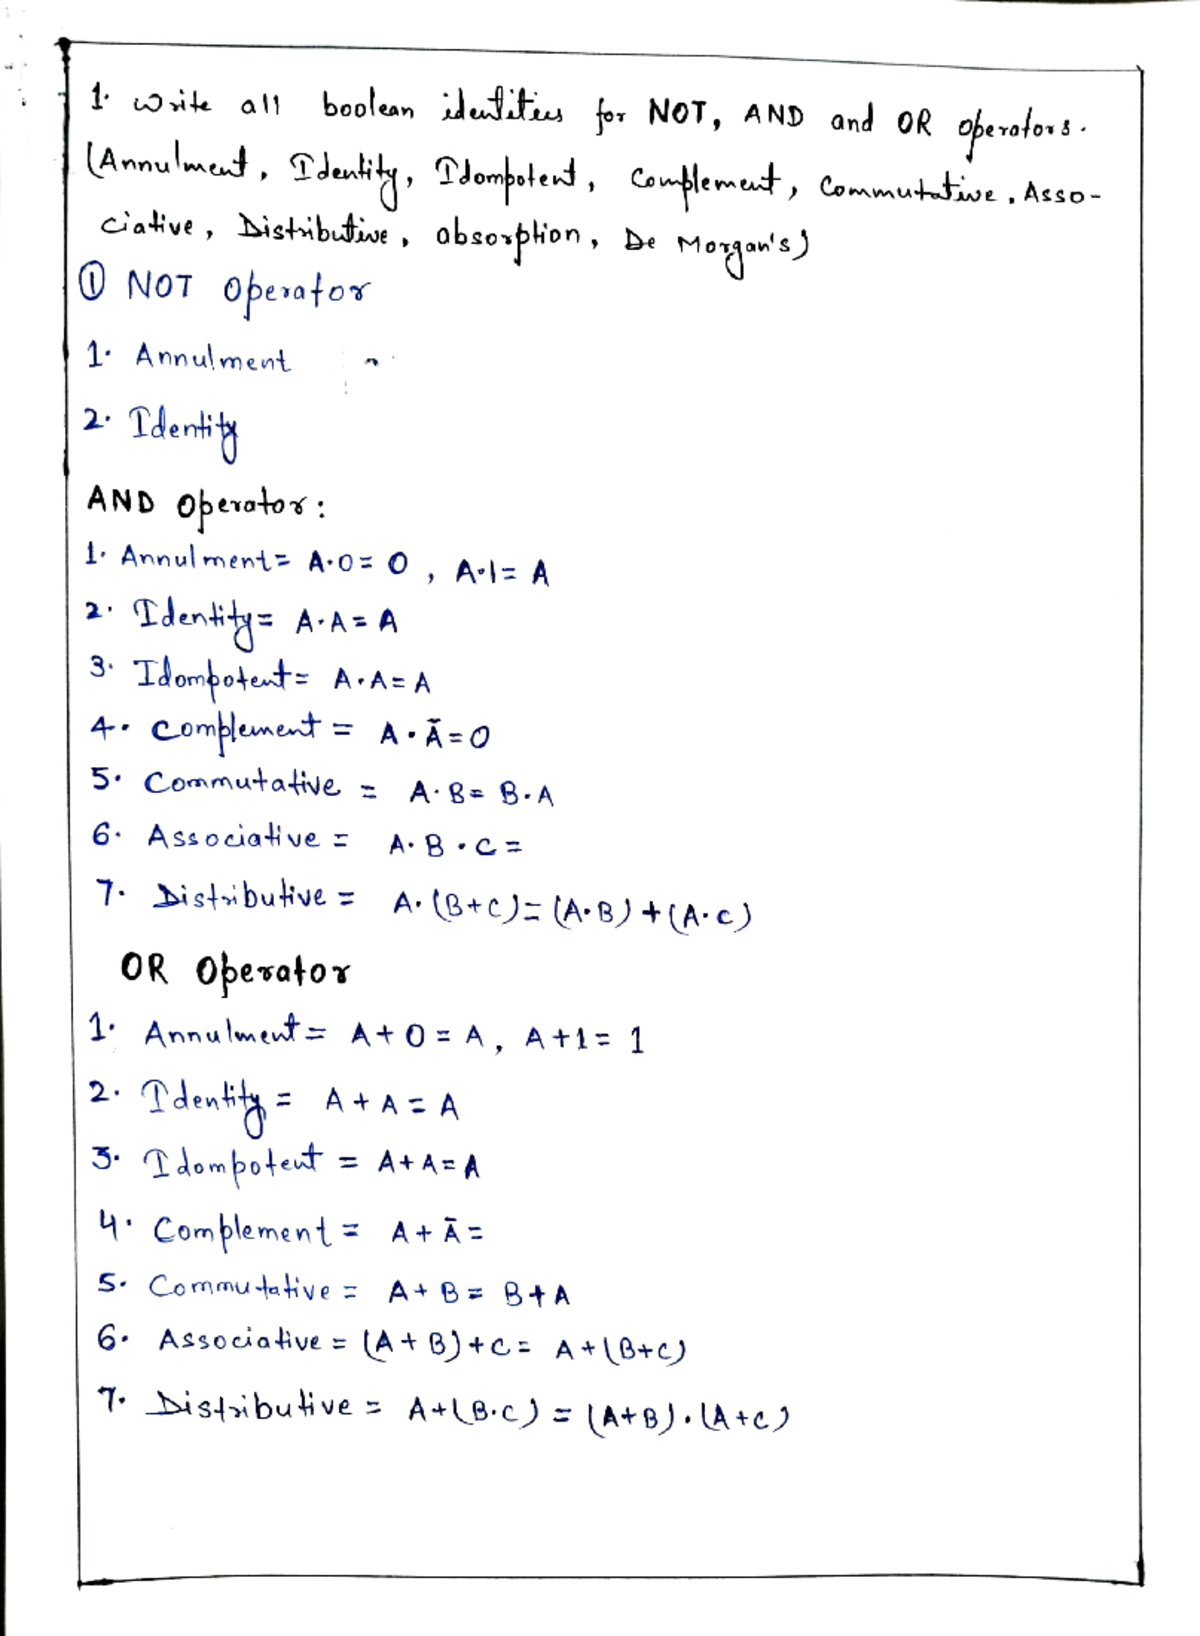 1. Write all boolean identities for NOT, AND and OR operators.
(Annulment, Identity, Idompotent, Complement, Commutative, Asso-
ciative, Distributive, absorption, De Morgan's)
① NOT Operator
1. Annulment
2. Identity
AND Operator:
1. Annulment = A·0 = 0, A·1 = A
2. Identity = A·A = A
3. Idompotent = A·A = A
4. Complement = A·Ā = 0
5. Commutative = A·B = B·A
6. Associative = A·B·C =
7. Distributive = A·(B+C) = (A·B) + (A·C)
OR Operator
1. Annulment = A+0 = A, A+1 = 1
2. Identity = A+A = A
3. Idompotent = A+A = A
4. Complement = A+Ā =
5. Commutative = A+B = B+A
6. Associative = (A+B)+C = A+(B+C)
7. Distributive = A+(B·C) = (A+B)·(A+C)